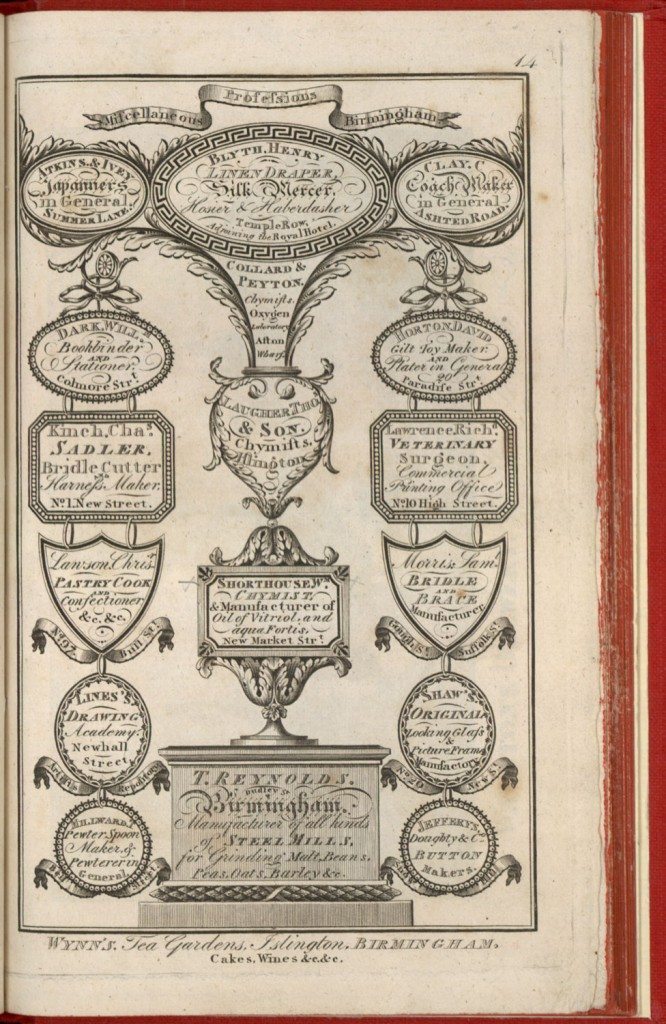 14
Professions
Miscellaneous
Birmingham
ATKINS, & IVEY
Japanners
in General.
SUMMER LANE.
BLYTH, HENRY
LINEN DRAPER,
Silk Mercer,
Hosier & Haberdasher
Temple Row,
Adjoining the Royal Hotel.
CLAY, C
Coach Maker
in General
ASHTED ROAD.
COLLARD &
PEYTON,
Chymists.
Oxygen
Laboratory
Aston
Wharf.
DARK, WILLm
Bookbinder
AND
Stationer,
Colmore Strt.
HORTON, DAVID
Gilt Toy Maker
AND
Plater in General
20
Paradise Strt
LAUGHER, THOs
& SON.
Chymists,
Islington
Kinch, Chas.
SADLER,
Bridle Cutter
Harness Maker,
No. 1, New Street.
Lawrence, Richd.
VETERINARY
Surgeon,
Commercial
Printing Office
No. 10 High Street.
Lawson, Christ.
PASTRY COOK
AND
Confectioner
&c. &c.
No. 92,
Bull St.
SHORTHOUSE, Wm.
CHYMIST,
& Manufacturer of
Oil of Vitriol, and
aqua Fortis,
New Market Strt.
Morris, Saml.
BRIDLE
AND
BRACE
Manufacturer.
Suffolk St.
LINES'S,
DRAWING
Academy.
Newhall
Street,
SHAW'S,
ORIGINAL
Looking Glass
&
Picture Frame
Manufactory.
No. 20
New St.
T. REYNOLDS.
Dudley St
Birmingham.
Manufacturer of all kinds
of STEEL MILLS,
for Grinding Malt, Beans,
Peas, Oats, Barley &c.
MILLWARD,
Pewter Spoon
Maker, &
Pewterer in
General.
JEFFERYS,
Doughty & Co.
BUTTON
Makers.
WYNN'S, Tea Gardens, Islington, BIRMINGHAM.
Cakes, Wines &c. &c.